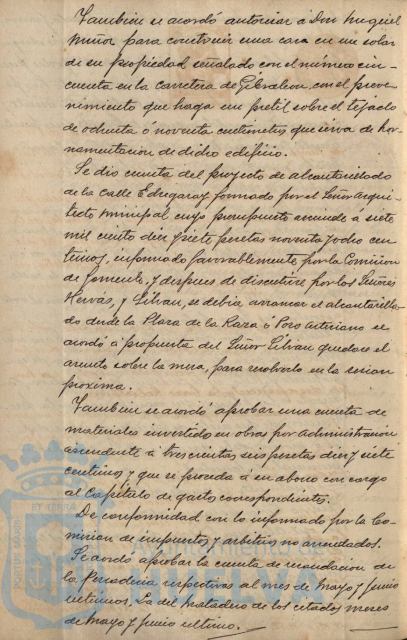 Tambien se acordó autorizar á Don Miguel
Muñoz para construir una casa en un solar
de su propiedad señalado con el número cin-
cuenta en la Carretera de Gibraleon, con el preve-
nimiento que haga un pretil sobre el tejado
de ochenta ó noventa centimetros que sirva de hor-
namentacion de dicho edificio.
Se dió cuenta del proyecto de alcantarillado
de la Calle formado por el Señor Arqui-
tecto municipal cuyo presupuesto asciende a siete
mil ciento diez y siete pesetas noventa y ocho cen-
timos, informado favorablemente por la Comision
de fomento. y despues de discutirse por los Señores
Hervás, y Silván, se debia arrancar el alcantarilla-
do desde la Plaza de la ó Pozo se
acordó á propuesta del Señor Silvan quedase el
asunto sobre la mesa, para resolverlo en la sesion
proxima.
Tambien se acordó aprobar una cuenta de
materiales invertidos en obras por administracion
ascendente á trescientas seis pesetas diez y siete
centimos y que se proceda á su abono con cargo
al Capítulo de gastos correspondientes.
De conformidad con lo informado por la Co-
mision de impuestos y arbitrios no arrendados.
Se acordó aprobar la cuenta de recaudacion de
la respectivas al mes de Mayo y Junio
ultimos. La del Matadero de los citados meses
de Mayo y Junio ultimo.
PORTUS MARIS ET TERRÆ
Ayuntamiento de
HUELVA